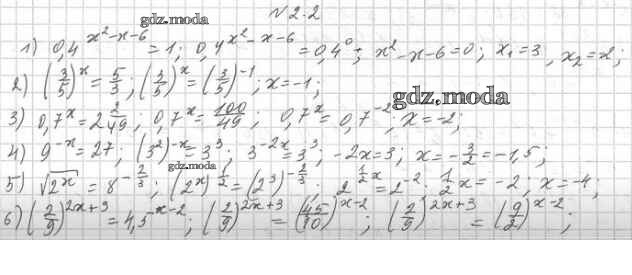 №2.2
gdz.moda
1) 0,4^(x²-x-6) = 1; 0,4^(x²-x-6) = 0,4⁰; x²-x-6=0; x₁=3, x₂=-2;
2) (3/5)^x = 5/3; (3/5)^x = (3/5)^(-1); x=-1;
gdz.moda
3) 0,7^x = 2 2/49; 0,7^x = 100/49; 0,7^x = 0,7^(-2); x=-2;
4) 9^(-x) = 27; (3²)^(-x) = 3³; 3^(-2x) = 3³; -2x=3; x=-3/2=-1,5;
gdz.moda
5) √(2^x) = 8^(-2/3); (2^x)^(1/2) = (2³)^(-2/3); 2^(1/2 x) = 2^(-2); 1/2 x = -2; x=-4;
6) (2/9)^(2x+3) = 4,5^(x-2); (2/9)^(2x+3) = (45/10)^(x-2); (2/9)^(2x+3) = (9/2)^(x-2);